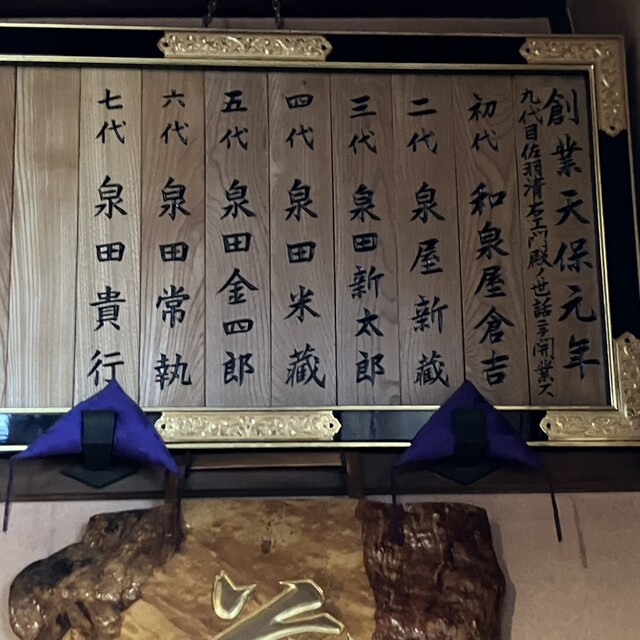 創業天保元年
九代目佐羽清右ェ門殿ノ世話ニテ開業ス
初代 和泉屋倉吉
二代 泉屋新蔵
三代 泉田新太郎
四代 泉田米蔵
五代 泉田金四郎
六代 泉田常執
七代 泉田貴行